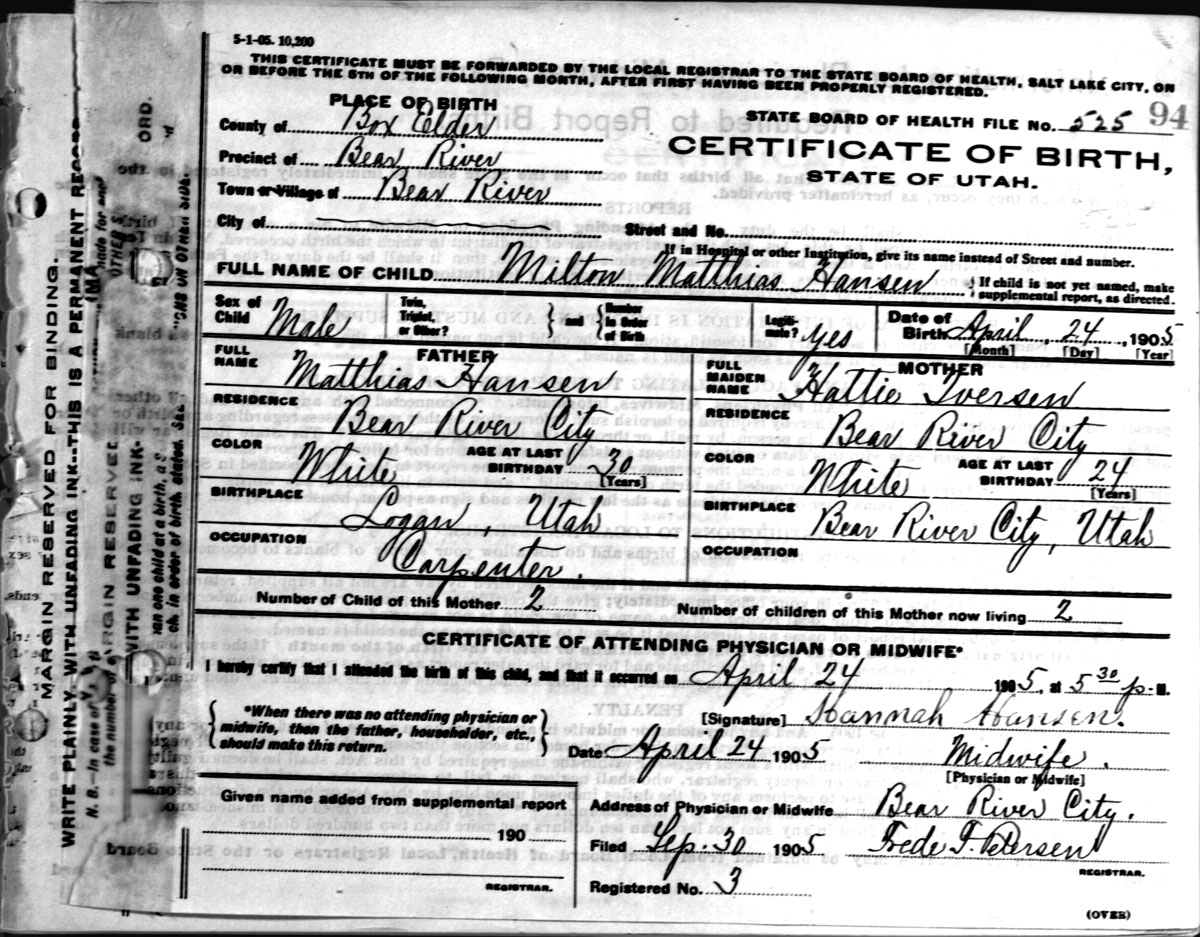 5-1-05. 10,200
THIS CERTIFICATE MUST BE FORWARDED BY THE LOCAL REGISTRAR TO THE STATE BOARD OF HEALTH, SALT LAKE CITY, ON
OR BEFORE THE 5TH OF THE FOLLOWING MONTH, AFTER FIRST HAVING BEEN PROPERLY REGISTERED.
PLACE OF BIRTH
County of Box Elder
Precinct of Bear River
Town or Village of Bear River
City of
STATE BOARD OF HEALTH FILE No. 525 94
CERTIFICATE OF BIRTH,
STATE OF UTAH.
Street and No.
If in Hospital or other Institution, give its name instead of Street and number.
FULL NAME OF CHILD Milton Matthias Hansen
If child is not yet named, make
supplemental report, as directed.
Sex of Child Male
Twin, Triplet, or Other?
and
Number in Order of Birth
Legitimate? Yes
Date of Birth April, 24, 1905
[Month] [Day] [Year]
FATHER
FULL NAME Matthias Hansen
RESIDENCE Bear River City
COLOR White
AGE AT LAST BIRTHDAY 30
[Years]
BIRTHPLACE Logan, Utah
OCCUPATION Carpenter.
MOTHER
FULL MAIDEN NAME Hattie Iversen
RESIDENCE Bear River City
COLOR White
AGE AT LAST BIRTHDAY 24
[Years]
BIRTHPLACE Bear River City, Utah
OCCUPATION
Number of Child of this Mother 2
Number of children of this Mother now living 2
CERTIFICATE OF ATTENDING PHYSICIAN OR MIDWIFE*
I hereby certify that I attended the birth of this child, and that it occurred on April 24 1905, at 5 30 p. M.
*When there was no attending physician or
midwife, then the father, householder, etc.,
should make this return.
[Signature] Hannah Hansen.
Date April 24 1905
Midwife.
[Physician or Midwife]
Given name added from supplemental report
190
REGISTRAR.
Address of Physician or Midwife Bear River City.
Filed Sep. 30 1905 Frede F. Petersen
REGISTRAR.
Registered No. 3
(OVER)
MARGIN RESERVED FOR BINDING.
WRITE PLAINLY WITH UNFADING INK--THIS IS A PERMANENT RECORD
N. B.--In case of
the number of
WITH UNFADING INK-
RGIN RESERVED